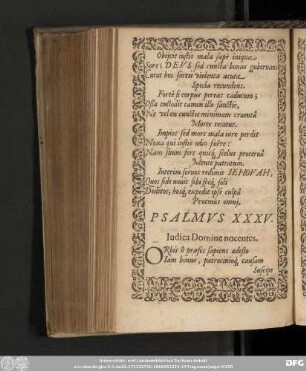 Objicit iustis mala sæpè iniqua
Sors; DEVS sed cuncta bonus gubernans
Curat his fortis violenta acuta
Spicla retundens.
Fortè si corpus pereat caducum;
Ossa custodit tamen ille sanctis,
Ne vel ex cunctis minimum cruentâ
Morte teratur.
Impios sed mors mala iure perdit
Noxa qui iustis odio fuêre:
Nam suum fere quisq́ scelus
Mente patratum.
Interim servos redimit IEHOVAH,
Quos fide novit sibi soli
Deditos, hosq́ expedit ipse culpâ
Protinus omni.
PSALMVS XXXV.
Iudica Domine nocentes.
ORbis ô præses sapiens adesto
Iam bonus, patrocinioq́ causam
Suscipe